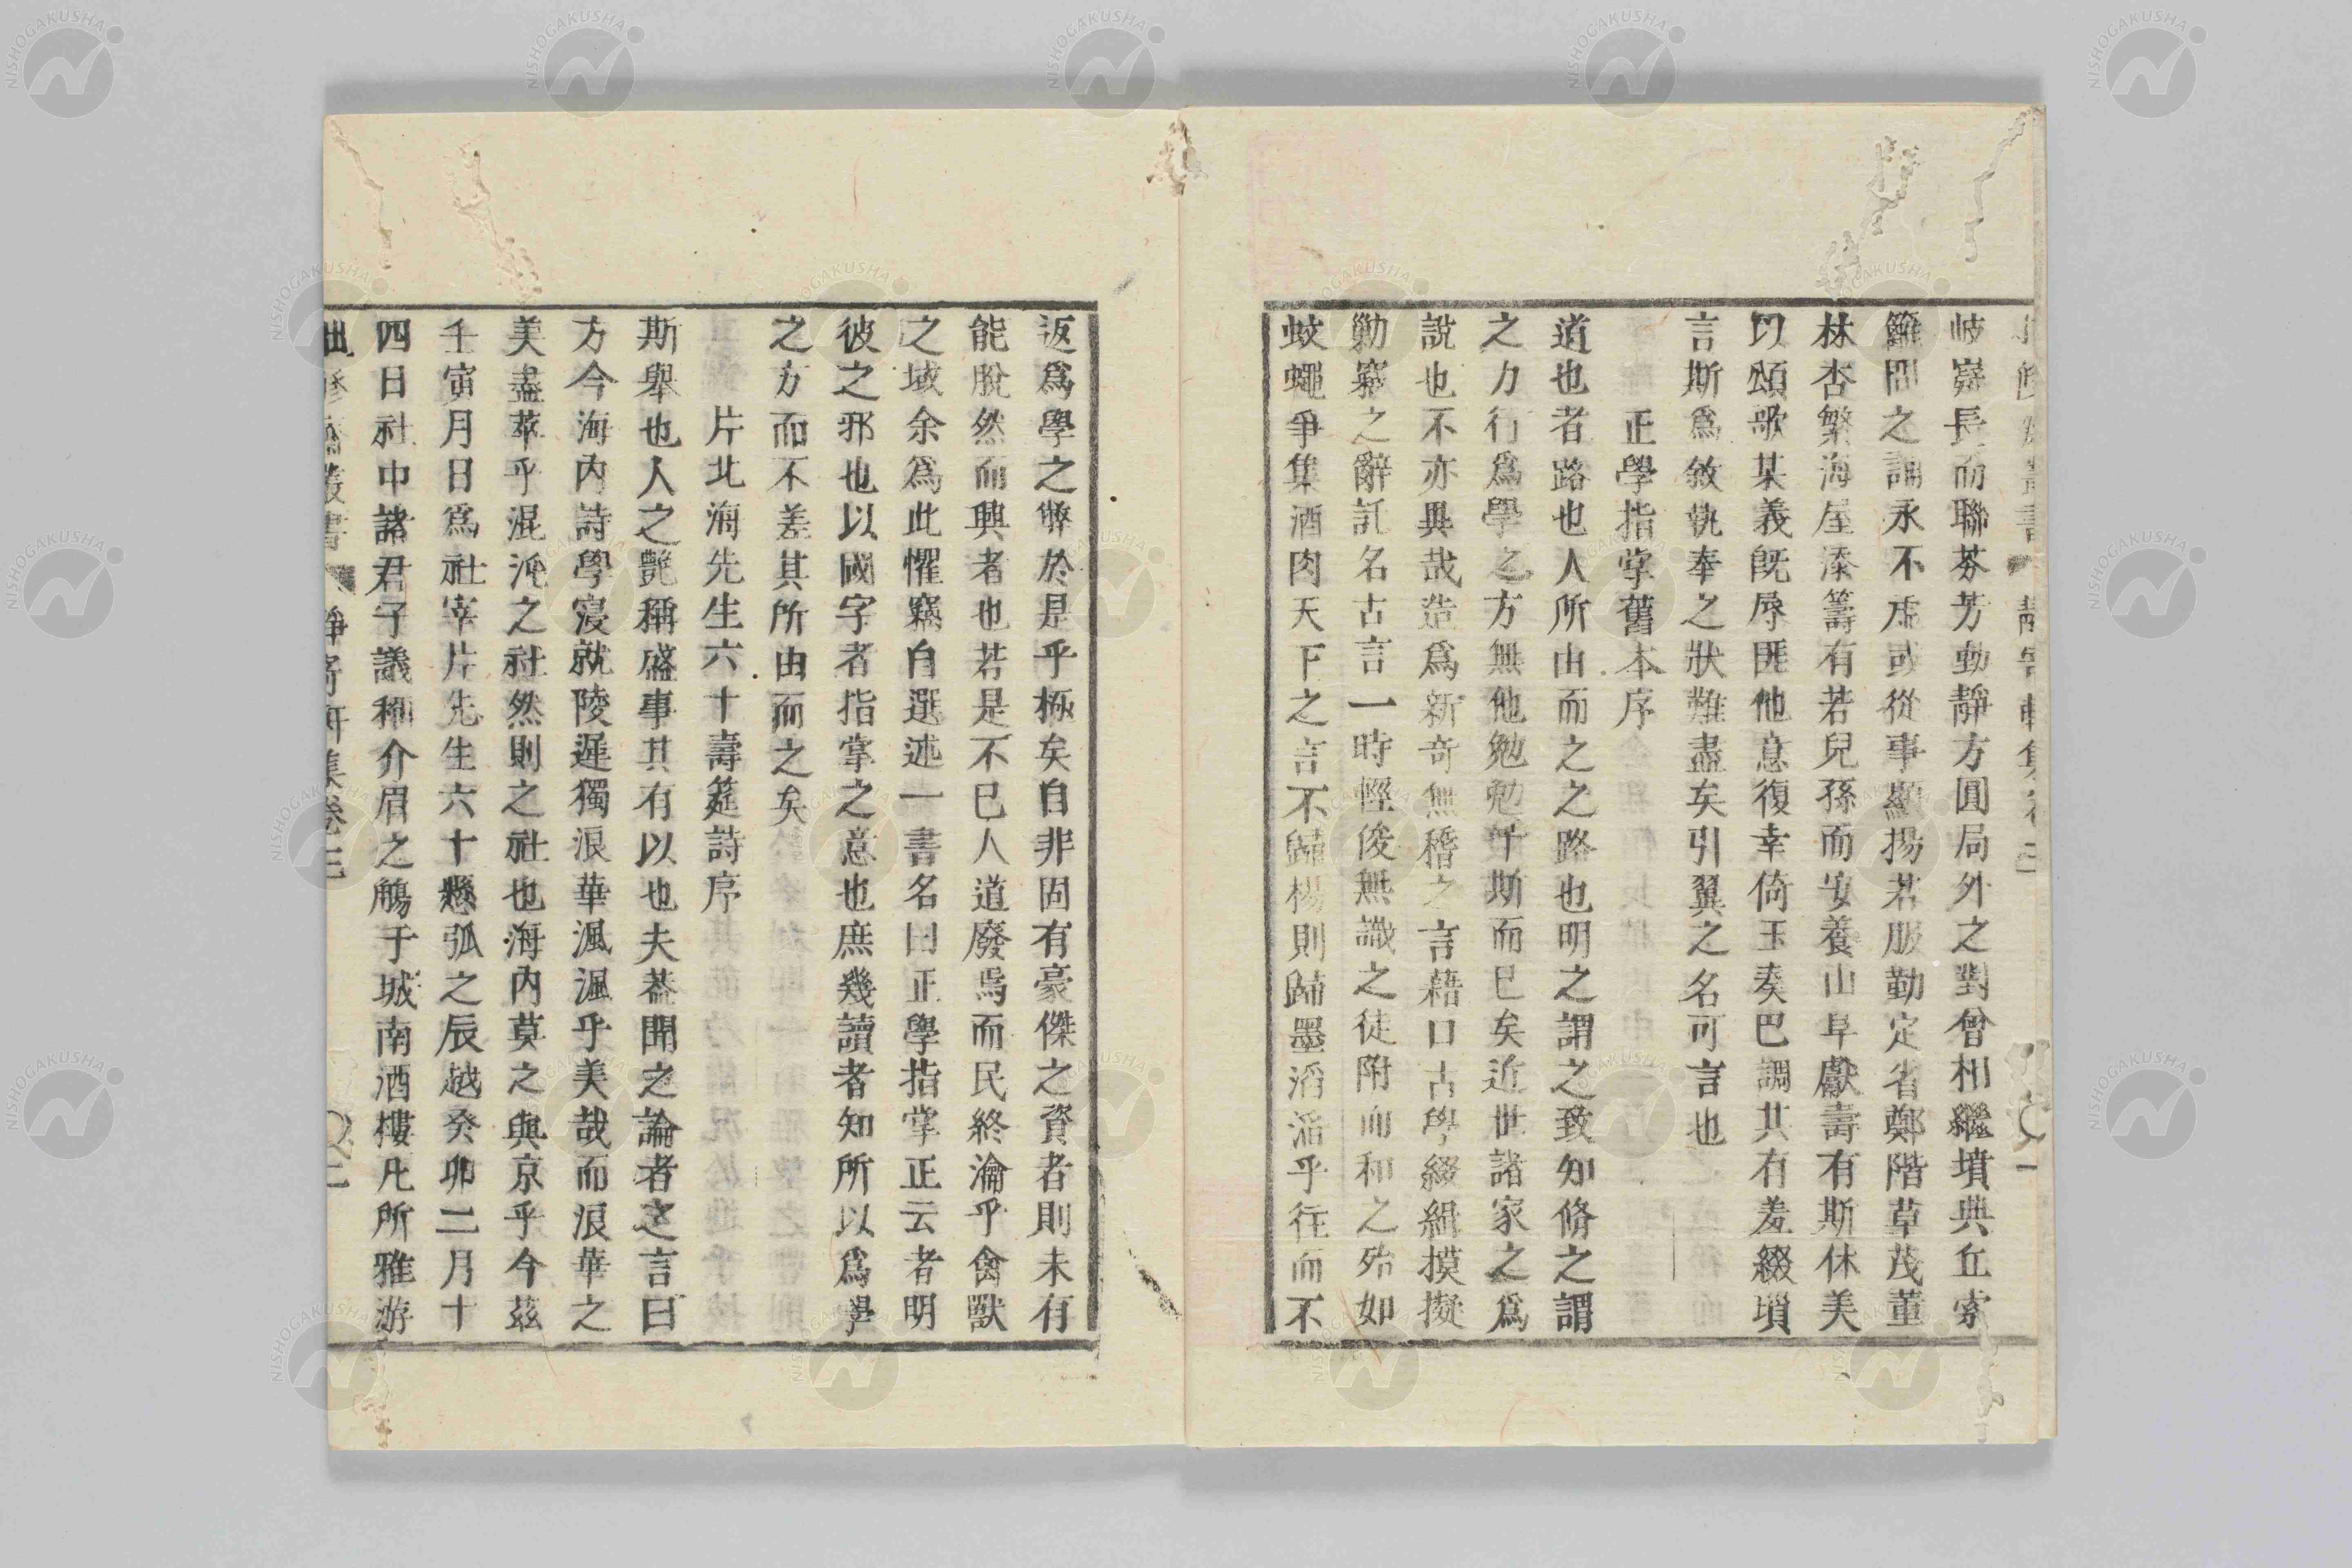 岐嶷長而聯芬芳動靜方圓局外之對曾相繼墳典丘索
籬間之誦永不虛或從事顯揚若服勤定省鄭階草茂董
林杏繁海屋添籌有若兒孫而安養山阜獻壽有斯休美
以頌歌某義既辱匪他意復幸倚玉奏巴調其有羞綴瑣
言斯爲敘執奉之狀難盡矣引翼之名可言也
正學指掌舊本序
道也者路也人所由而之之路也明之謂之致知脩之謂
之力行爲學之方無他勉勉乎斯而已矣近世諸家之爲
說也不亦異哉造爲新奇無稽之言藉口古學綴緝摸擬
勦竊之辭託名古言一時輕俊無識之徒附而和之殆如
蚊蠅爭集酒肉天下之言不歸楊則歸墨滔滔乎往而不
返爲學之弊於是乎極矣自非固有豪傑之資者則未有
能脫然而興者也若是不已人道廢焉而民終淪乎禽獸
之域余爲此懼竊自選述一書名曰正學指掌正云者明
彼之邪也以國字者指掌之意也庶幾讀者知所以爲學
之方而不差其所由而之矣
片北海先生六十壽筵詩序
斯舉也人之艷稱盛事其有以也夫葢聞之論者之言曰
方今海內詩學寖就陵遲獨浪華渢渢乎美哉而浪華之
美盡萃乎混沌之社然則之社也海內莫之與京乎今茲
壬寅月日爲社宰片先生六十懸弧之辰越癸卯二月十
四日社中諸君子議稱介眉之觴于城南酒樓凡所雅游